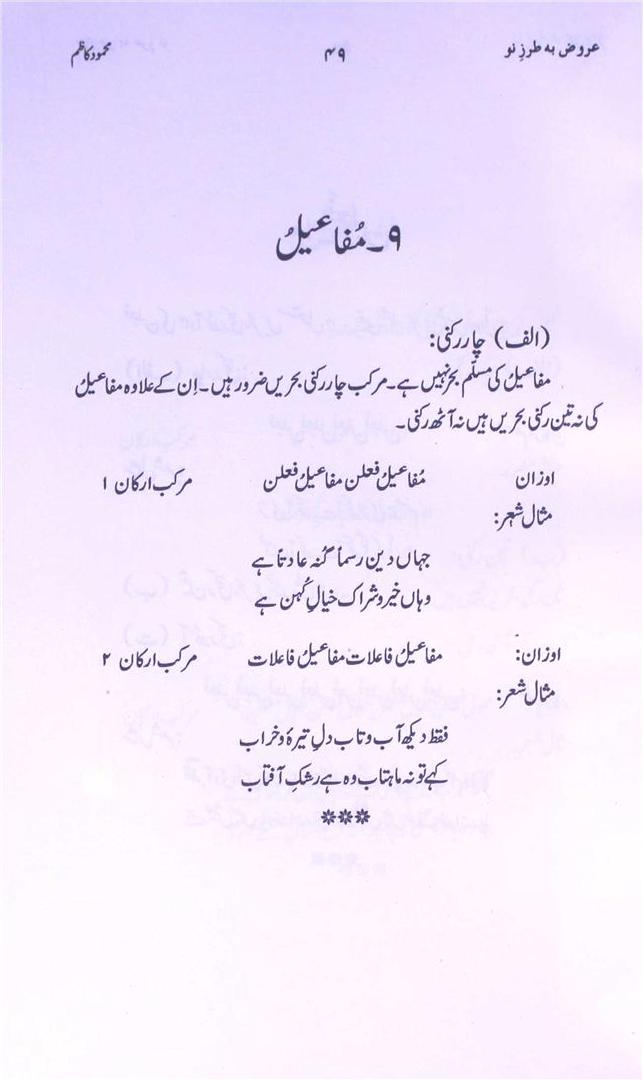 عروض بہ طرزِ نو ۴۹ محمود کاظم
۹۔ مُفاعیلُ
(الف) چار رکنی:
مفاعیلُ کی مسلّم بحر نہیں ہے۔ مرکب چار رکنی بحریں ضرور ہیں۔ اِن کے علاوہ مفاعیلُ
کی نہ تین رکنی بحریں ہیں نہ آٹھ رکنی۔
اوزان مُفاعیلُ فعلن مفاعیلُ فعلن مرکب ارکان ۱
مثال شعر:
جہاں دین رسماً گنہ عادتاً ہے
وہاں خیر و شر اک خیالِ کُہن ہے
اوزان: مفاعیلُ فاعلات مفاعیلُ فاعلات مرکب ارکان ۲
مثال شعر:
فقط دیکھ آب و تاب دلِ تیرۂ و خراب
کہے تو نہ ماہتاب وہ ہے رشکِ آفتاب
***